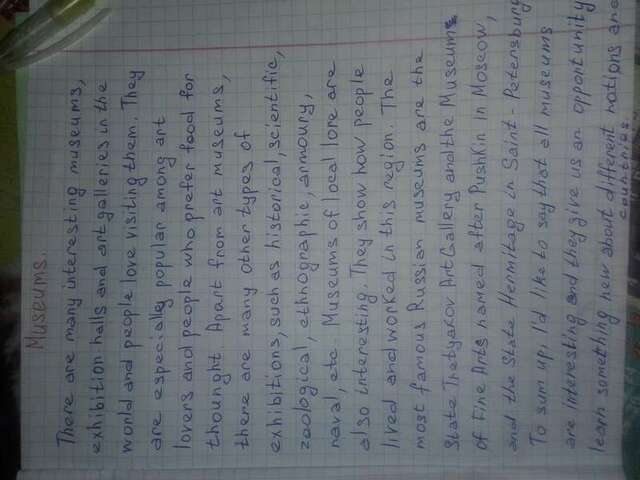 Museums.
There are many interesting museums,
exhibition halls and art galleries in the
world and people love visiting them. They
are especially popular among art
lovers and people who prefer food for
thounght. Apart from art museums,
there are many other types of
exhibitions, such as historical, scientific,
zoological, ethnographic, armoury,
naval, etc. Museums of local lore are
also interesting. They show how people
lived and worked in this region. The
most famous Russian museums are the
State Tretyakov Art Gallery and the Museums
of Fine Arts named after Pushkin in Moscow,
and the State Hermitage in Saint-Petersburg
To sum up, I'd like to say that all museums
are interesting and they give us an opportunity
learn something new about different nations and
countries.